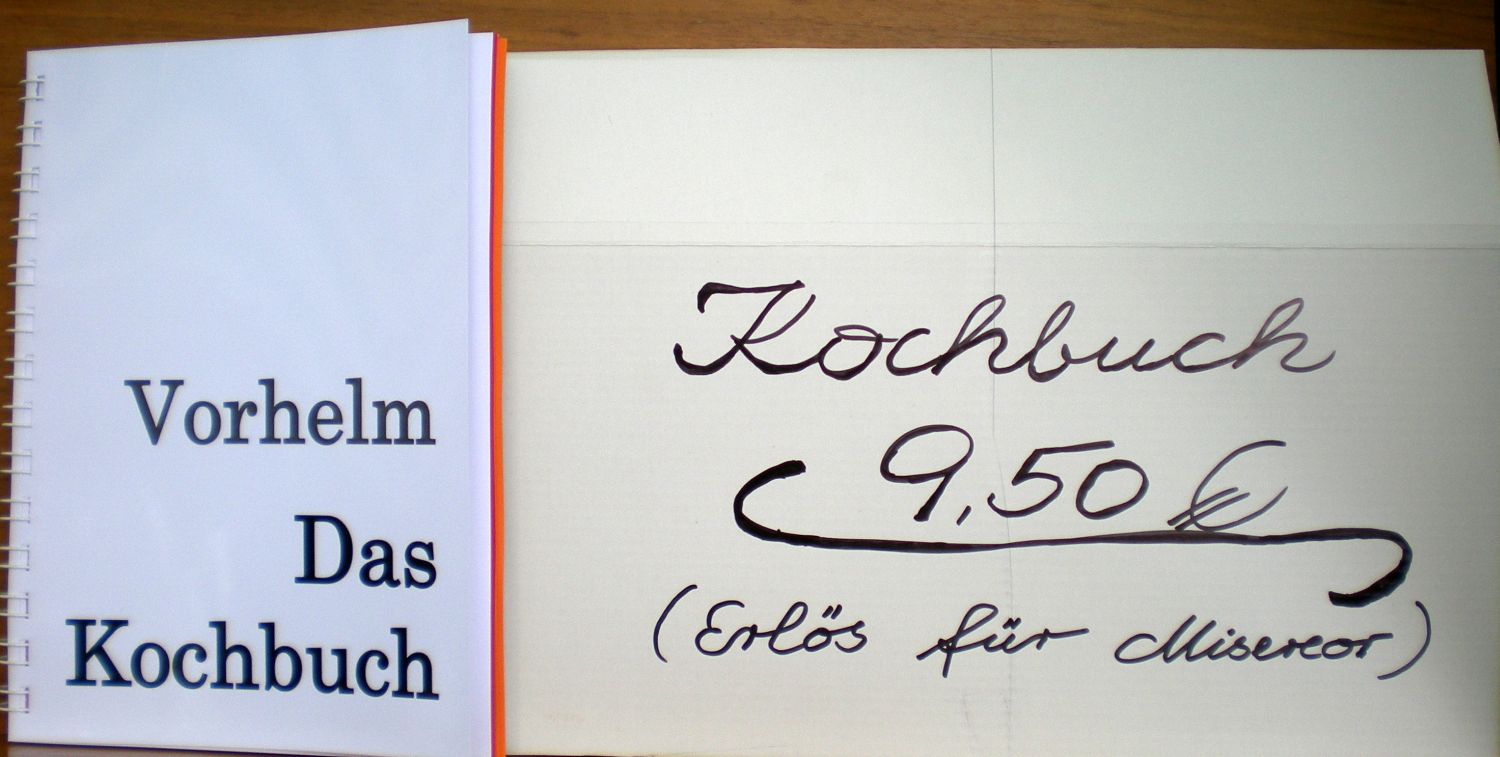 Vorhelm
Das
Kochbuch
Kochbuch
9,50 €
(Erlös für Misereor)